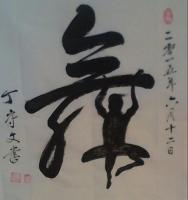 舞
二零一五年六月十二日
丁守文書